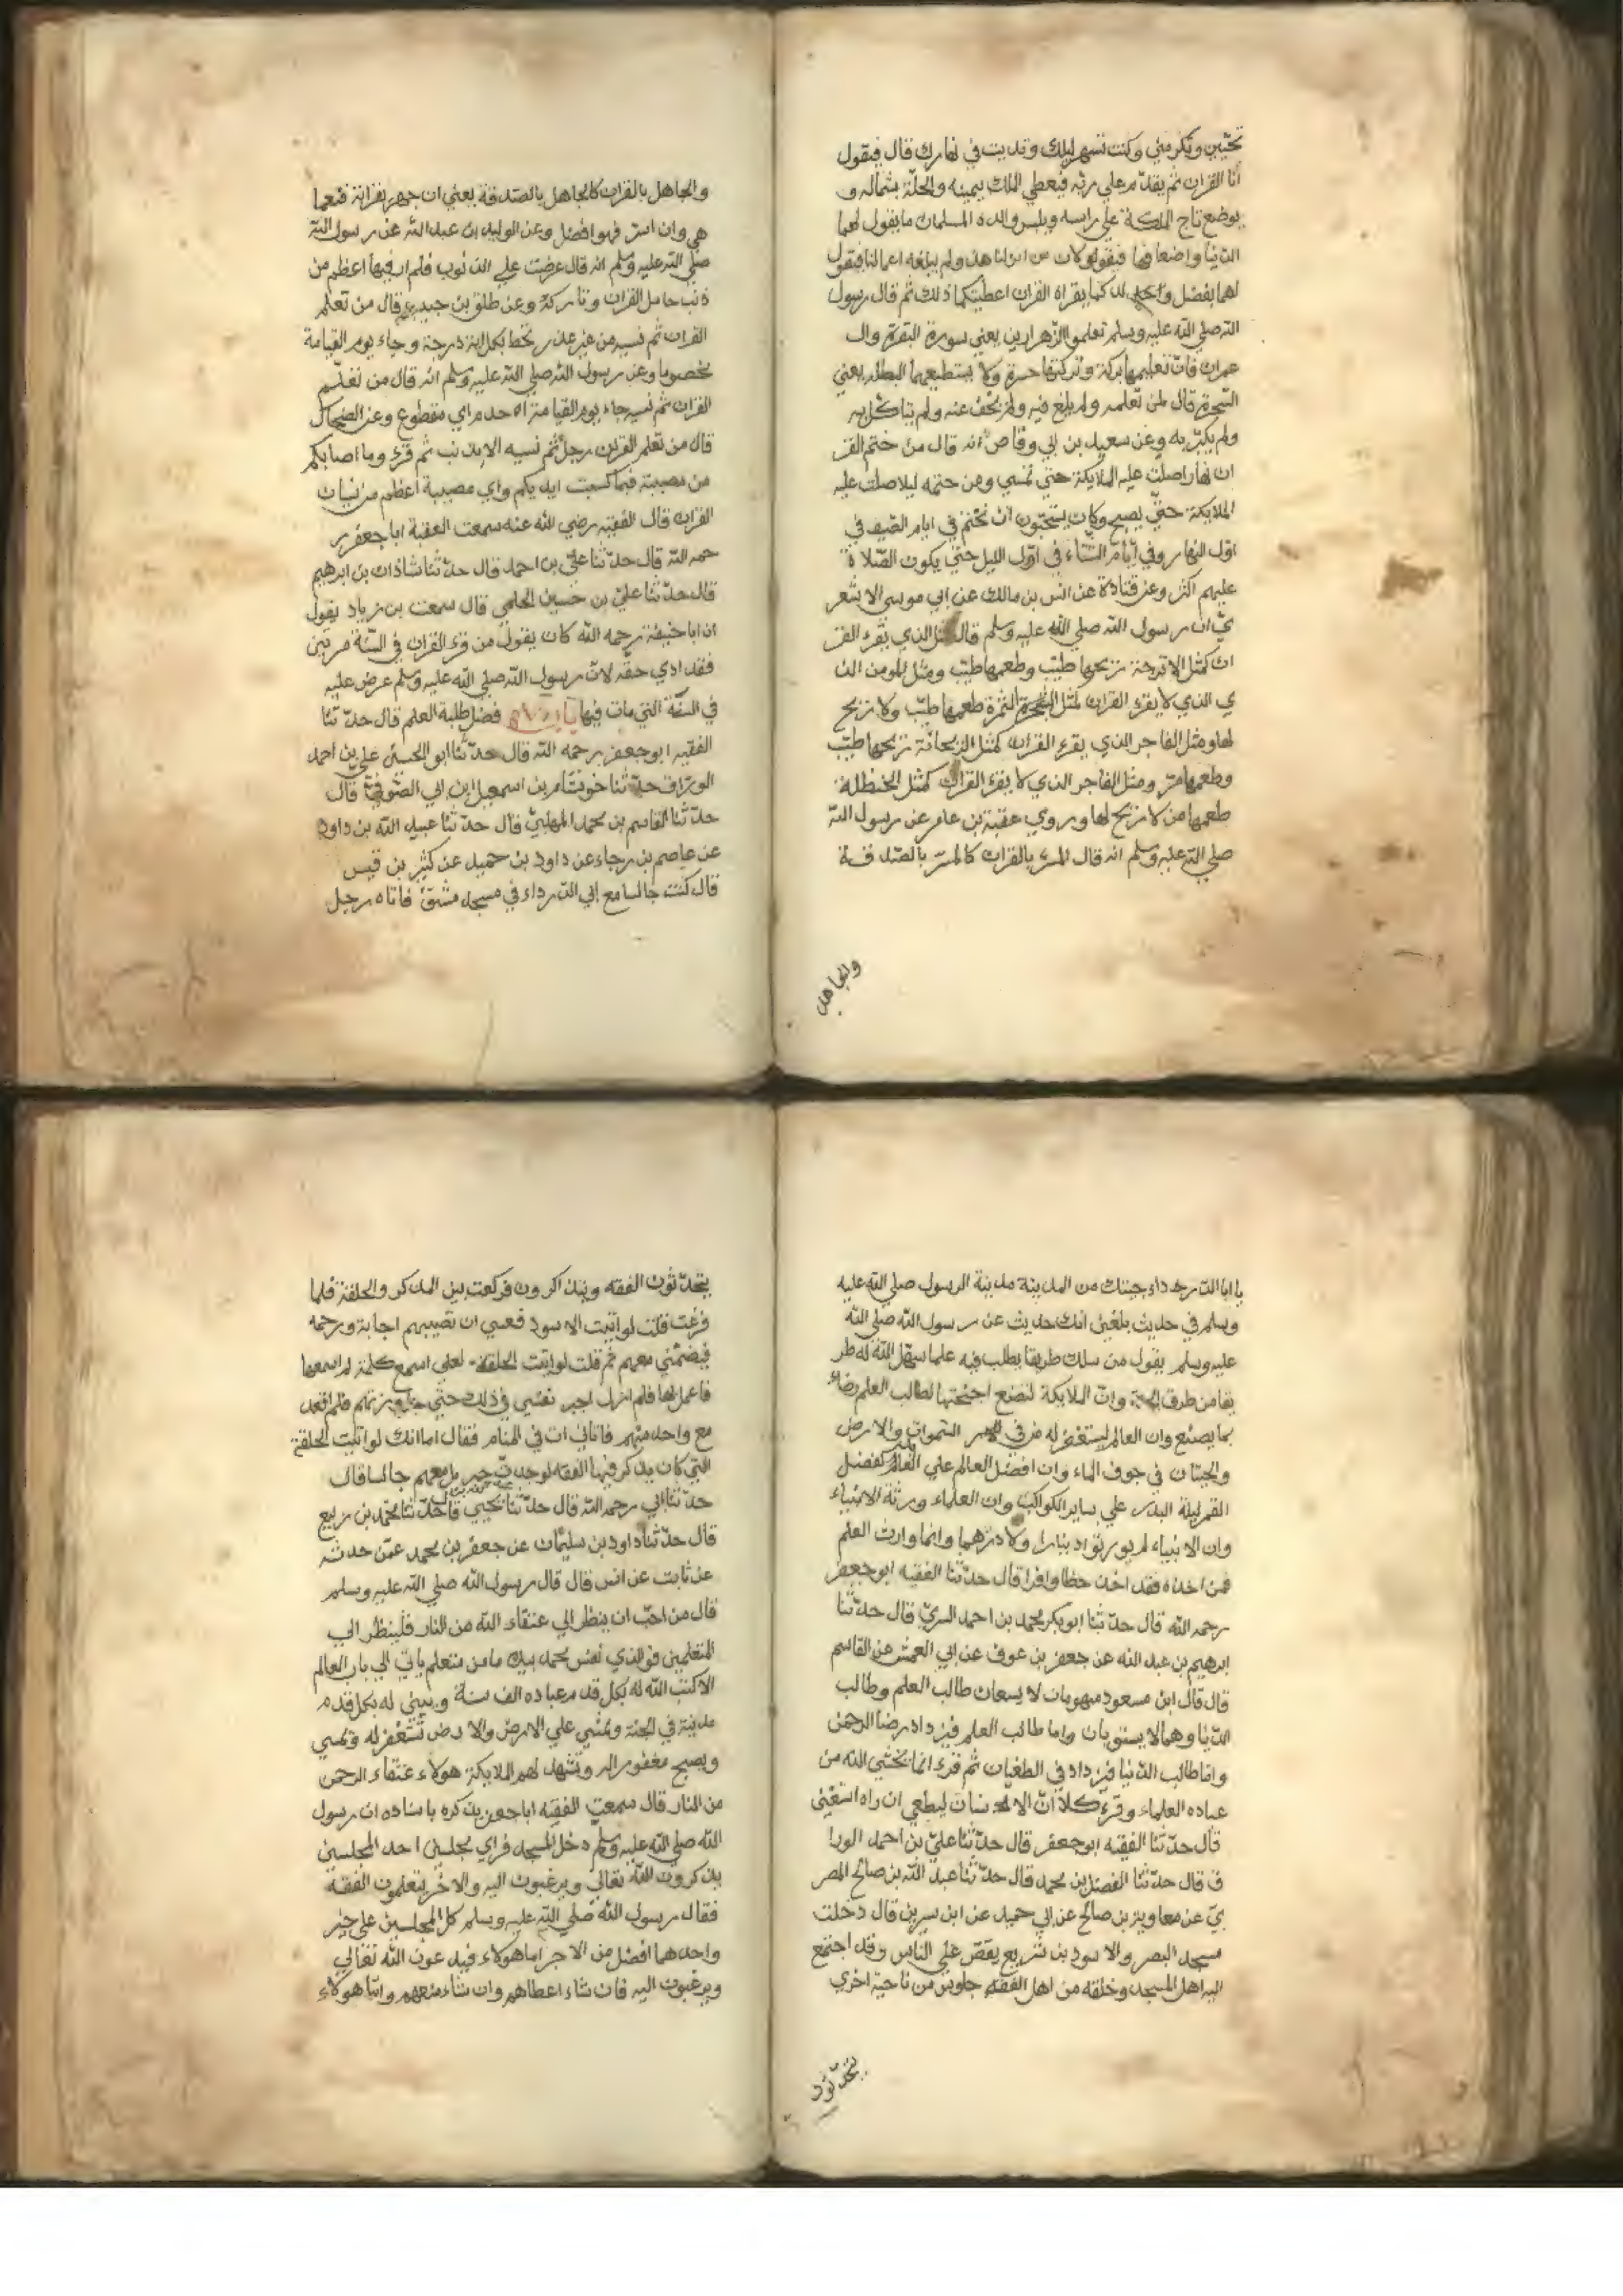 تحبني وتكرمني وكنت تسهر ليلك وتديت في نهارك قال فيقول
أنا القران ثم يقدم علي ربّه فيعطي الملك بيمينه والحلّة بشماله و
يوضع تاج الملكة علي راسه ويلبس والده المسلمان ما يقول لهما
الدنيا واضعافها فيقولان من اين لنا هذا ولم يبلغه اعمالنا فيقول
لهما بفضل ولدكما بقراة القران اعطيتكما ذلك ثم قال رسول
الله صلي الله عليه وسلم تعلموا الزهراوين يعني سورة البقرة وال
عمران فانّ تعليمهما بركة وتركهما حسرة ولا يستطيعهما البطلة يعني
السّحرة قال لمن تعلمه ولم يلغ فيه ولم يجف عنه ولم يتاكل به
ولم يكبّر به وعن سعيد بن ابي وقاص انه قال من ختم القر
ان نهارا صلت عليه الملايكة حتي تمسي ومن ختمه ليلا صلت عليه
الملايكة حتّي يصبح وكان يستحبّون ان نختم في ايام الصّيف في
اوّل النهار وفي أيّام الشّتاء في اوّل الليل حتّي يكون الصّلاة
عليهم اكثر وعن قتادة عن انس بن مالك عن ابي موسي الاشعر
يّ ان رسول الله صلي الله عليه وسلم قال مثل الذي يقرء القر
ان كمثل الاترجة ريحها طيّب وطعمها طيّب ومثل المومن الذ
ي الذي لا يقرء القران كمثل التمرة طعمها طيّب ولا ريح
لها ومثل الفاجر الذي يقرء القران كمثل الريحانة ريحها طيّب
وطعمها مرّ ومثل الفاجر الذي لا يقرء القران كمثل الحنظلة
طعمها مر لا ريح لها وروي عقبة بن عامر عن رسول اللّه
صلي الله عليه وسلم انه قال المسرّ بالقران كالمسرّ بالصّدقة
والجاهل
والجاهل بالقران كالجاهل بالصّدقة يعني ان جهر بقرانة فنعما
هي وان اسرّ فهو افضل وعن الوليد بن عبد اللّه عن رسول اللّه
صلّي اللّه عليه وسلم انه قال عرضت علي الذنوب فلم ار فيها اعظم من
ذنب حامل القران وتاركه وعن طلق بن حبيب قال من تعلم
القران ثم نسيه من غير عذر حط بكل اية درجة وجاء يوم القيامة
مخصوما وعن رسول اللّه صلي اللّه عليه وسلم انه قال من تعلّم
القران ثم نسيه جاء يوم القيامة اجذم اي مقطوع وعن الضحاك
قال من تعلم القران رجل ثم نسيه الا بذنب ثم قرء وما اصابكم
من مصيبة فبما كسبت ايديكم واي مصيبة اعظم من نسيان
القران قال الفقيه رضي الله عنه سمعت الفقيه ابا جعفر ر
حمه اللّه قال حدّثنا عليّ بن احمد قال حدّثنا شاذان بن ابرهيم
قال حدّثنا عليّ بن حسين الحلمي قال سمعت بن زياد يقول
ان ابا حنيفة رحمه اللّه كان يقول من قرء القران في السّنة مرتين
فقد ادي حقّه لانّ رسول اللّه صلي اللّه عليه وسلم عرض عليه
في السّنة التي مات فيها باب فضل طلبة العلم قال حدّثنا
الفقيه ابو جعفر رحمه اللّه قال حدّثنا ابو الحسن علي بن احمد
الورّاق حدّثنا بن اسمعيل ابن ابي قال
حدّثنا القاسم بن محمد المهلبيّ قال حدّثنا عبيد اللّه بن داود
عن عاصم بن رجاء عن داود بن حميد عن كثير بن قيس
قال كنت جالسا مع ابي الدّرداء في مسجد مشقّ فاتاه رجل
يا ابا الدّرداء جيتك من المدينة مدينة الرسول صلي اللّه عليه
وسلم في حديث بلغني انك حديث عن رسول اللّه صلي اللّه
عليه وسلم يقول من سلك طريقا يطلب فيه علما سهّل اللّه له طر
يقا من طرق الجنة وانّ الملايكة لتضع اجنحتها لطالب العلم رضاء
بما يصنع وان العالم ليستغفر له من في السّموات والارض
والحيتان في جوف الماء وان افضل العالم علي العابد كفضل
القمر ليلة البدر علي ساير الكواكب وان العلماء ورثة الانبياء
وان الانبياء لم يورثوا دينارا ولا درهما وانما وارث العلم
فمن اخذه فقد اخذ حظا وافرا قال حدّثنا الفقيه ابو جعفر
رحمه اللّه قال حدّثنا ابو بكر محمد بن احمد السريّ قال حدّثنا
ابرهيم بن عبد اللّه عن جعفر بن عوف عن ابي العمش عن القاسم
قال قال ابن مسعود منهومان لا يسعان طالب العلم وطالب
الدّنيا وهما لا يستويان واما طالب العلم فيزداد رضا الرحمن
وامّا طالب الدّنيا فيزداد في الطغيان ثم قرء انما يخشي اللّه من
عباده العلماء وقرء كلا انّ الانسان ليطغي ان راه استغني
قال حدّثنا الفقيه ابو جعفر قال حدّثنا عليّ بن احمد الورا
ق قال حدّثنا الفضل بن محمد قال حدّثنا عبد اللّه بن صالح المصر
يّ عن معاوية بن صالح عن ابي حميد عن ابن سرين قال دخلت
مسجد البصر والاسود بن شريع يقصّ علي الناس وقد اجتمع
اليه اهل المسجد وخلقه من اهل الفقه جلوس من ناحية اخري
يتحدّثون
يتحدّثون الفقه ويذاكرون فركعت بين المذكر والحلقة فلما
فرغت قلت لو اتيت الاسود فعسي ان تصيبهم اجابة ورحمه
فيضمّني معهم ثم قلت لو اتيت الحلقة لعلي اسمع كلمة لم اسمعها
فاعمل بها فلم ازل اجبر نفسي في ذلك حتي جاوزتهم فلم اقعد
مع واحد منهم فاتاني ات في المنام فقال اما انك لو اتيت الحلقة
التي كان يذكر فيها الفقه لوجدت جبريل معهم جالسا قال
حدّثنا ابي رحمه اللّه قال حدّثنا يحيي قال حدّثنا محمّد بن ربيع
قال حدّثنا داود بن سليمان عن جعفر بن محمد عمّن حدثه
عن ثابت عن انس قال قال رسول اللّه صلي اللّه عليه وسلم
قال من احبّ ان ينظر الي عتقاء اللّه من النار فلينظر الي
المتعلمين فو الذي نفس محمد بيده ما من متعلم ياتي الي باب العالم
الا كتب اللّه له بكل قدم عبادة الف سنة ويبني له بكل قدم
مدينة في الجنة ويمشي علي الارض والارض تستغفر له وتمسي
ويصبح مغفورا له وتشهد لهم الملايكة هولاء عتقاء الرحمن
من النار قال سمعت الفقيه ابا جعفر يذكره باسناده ان رسول
اللّه صلي اللّه عليه وسلم دخل المسجد فراي مجلسين احد المجلسين
يذكرون اللّه تعالي ويرغبون اليه والاخر يتعلمون الفقه
فقال رسول اللّه صلي اللّه عليه وسلم كل المجلسين علي خير
واحدهما افضل من الاخر اما هولاء فيدعون اللّه تعالي
ويرغبون اليه فان شاء اعطاهم وان شاء منعهم وامّا هولاء